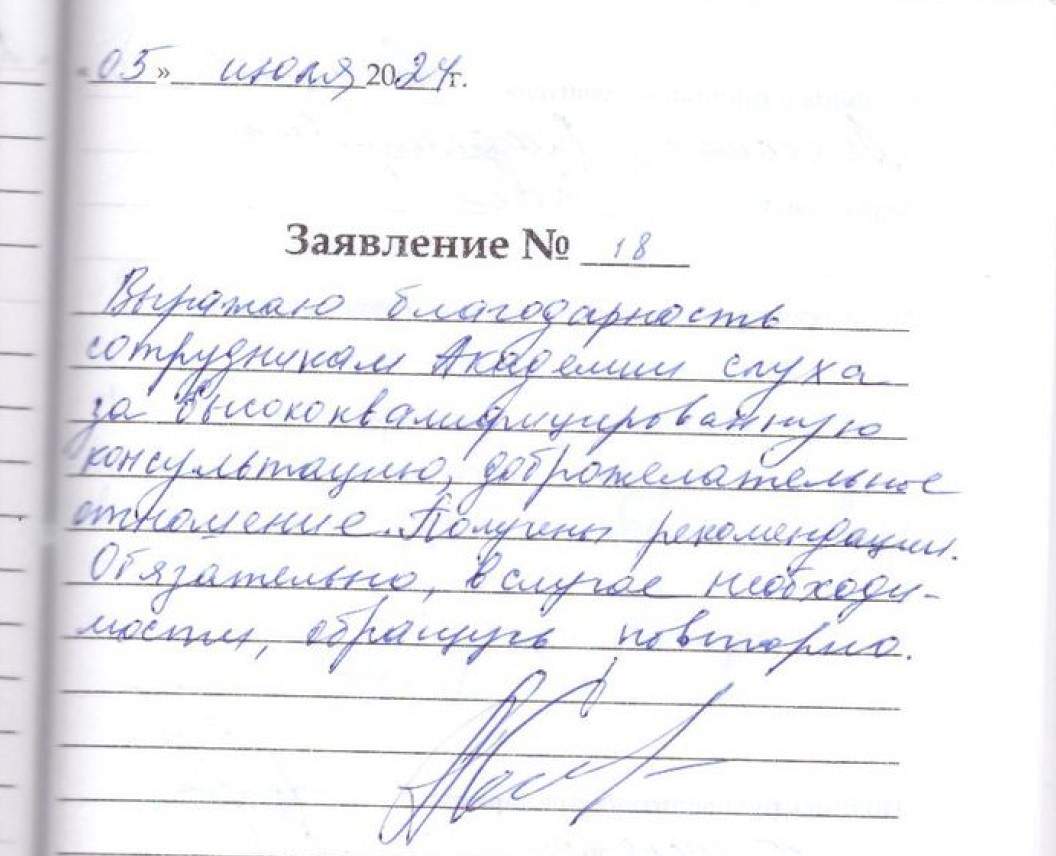 «05» июля 2024 г.
Заявление № 18
Выражаю благодарность
сотрудникам Академии слуха
за высококвалифицированную
консультацию, доброжелательное
отношение. Получены рекомендации.
Обязательно, в случае необходи-
мости, обращусь повторно.